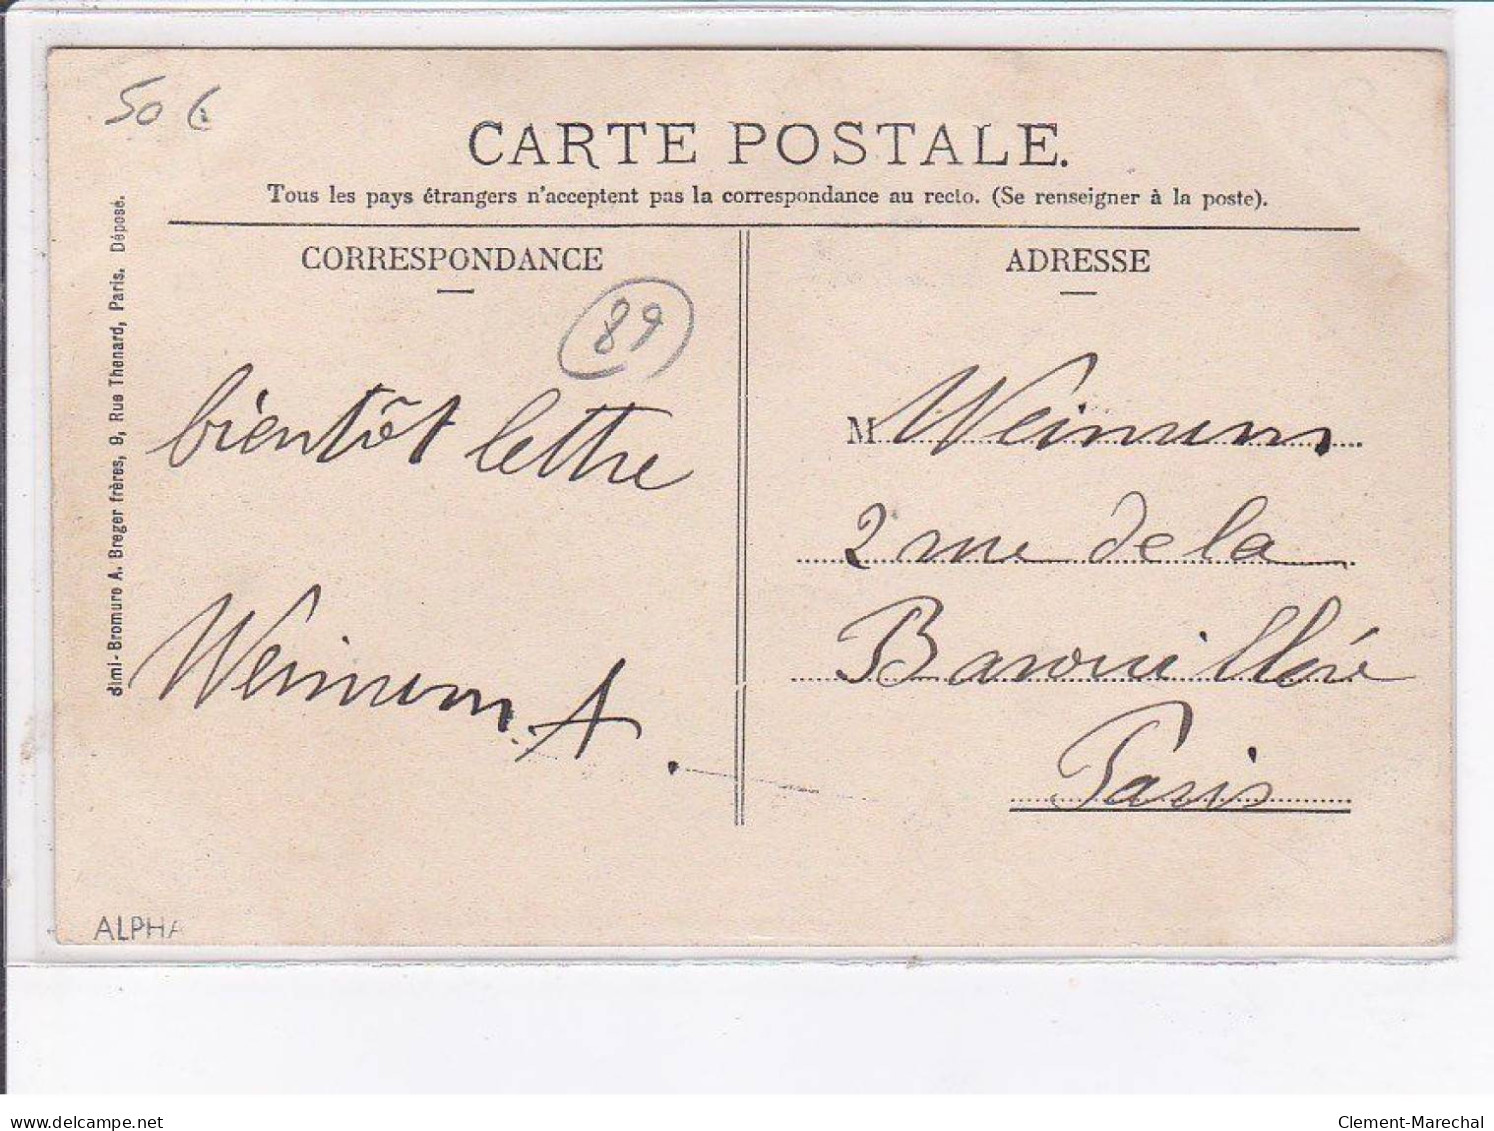 50 €
CARTE POSTALE.
Tous les pays étrangers n'acceptent pas la correspondance au recto. (Se renseigner à la poste).
CORRESPONDANCE
89
bientôt lettre
Weimum A.
ADRESSE
M Weimum
2 rue de la
Barouillère
Paris
Simi-Bromure A. Breger frères, 9, Rue Thenard, Paris. Déposé.
ALPHA
delcampe.net
Clement-Marechal